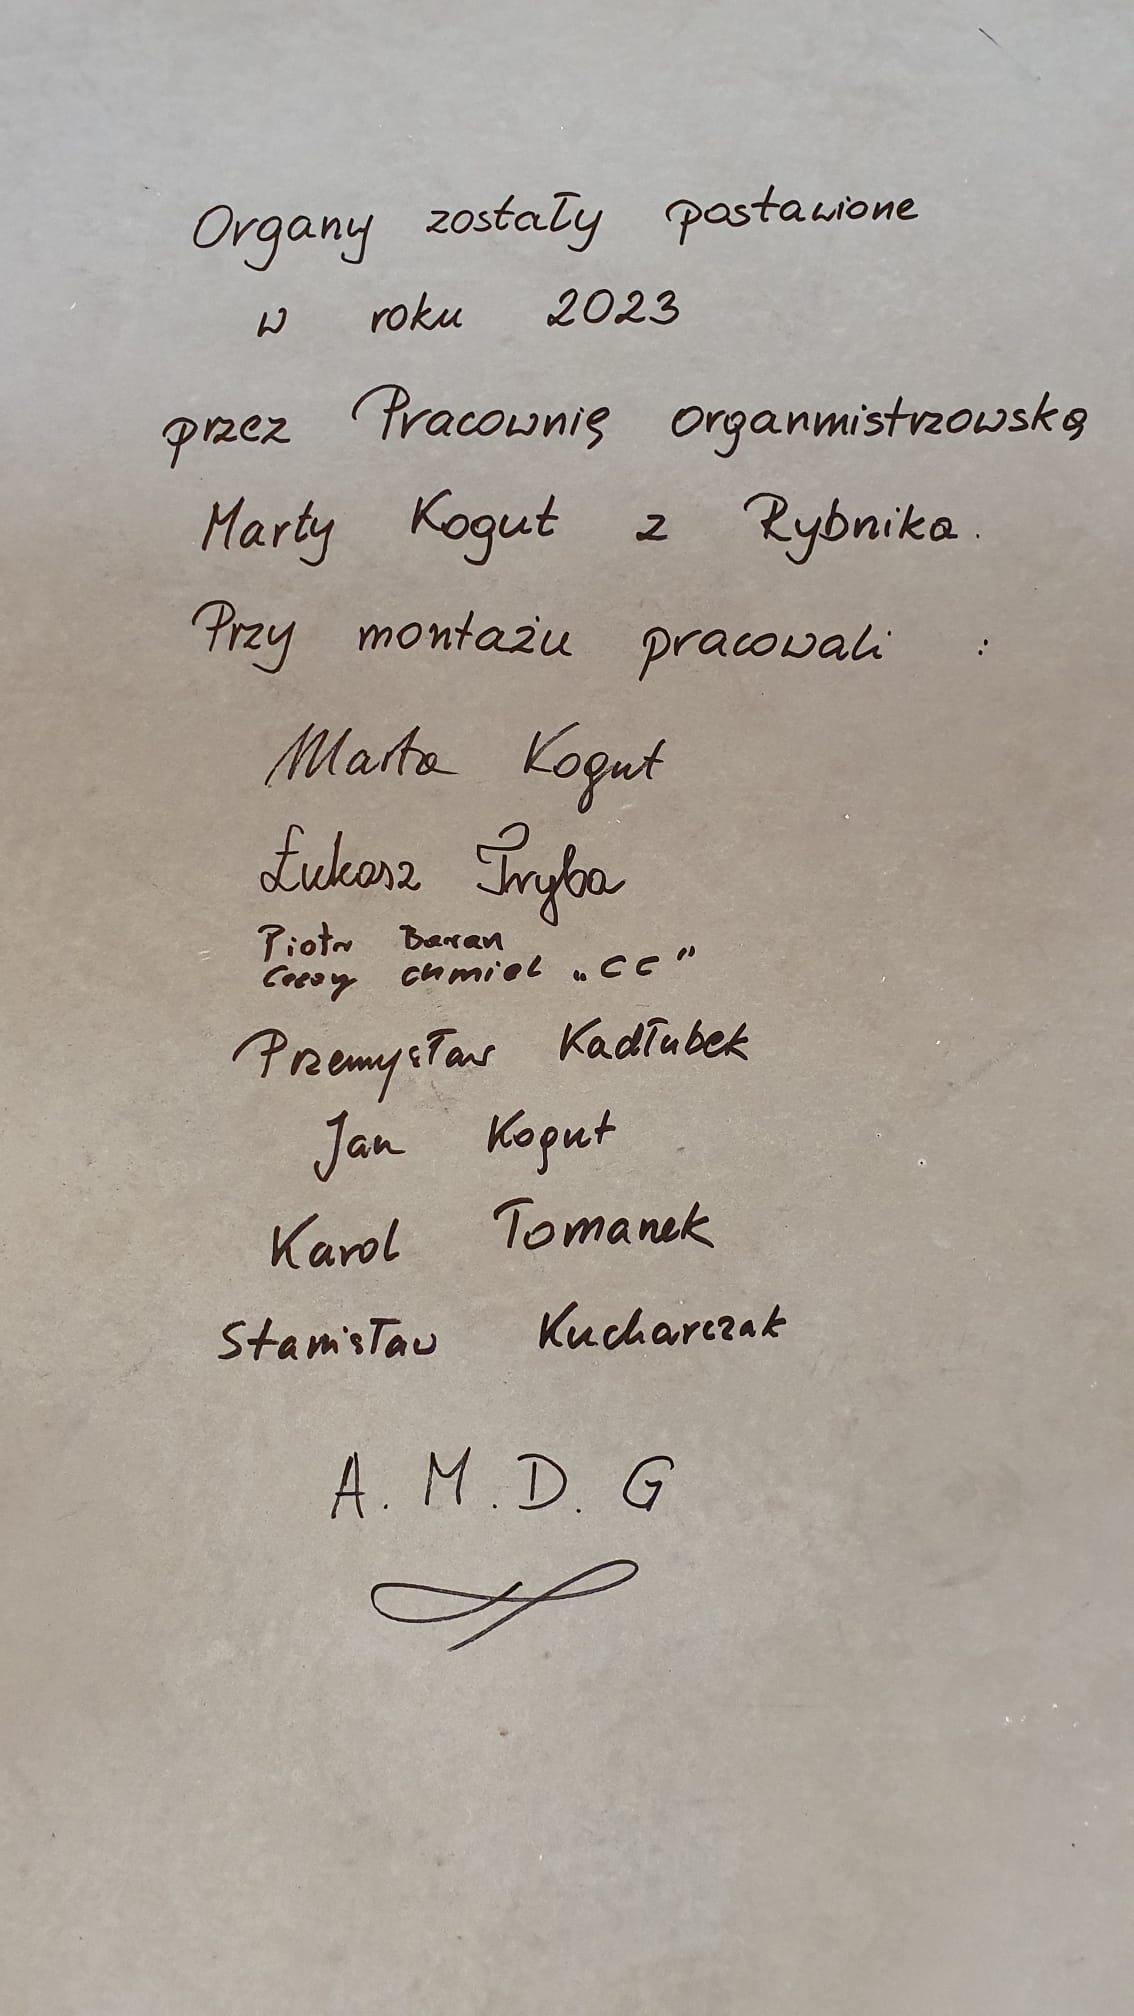 Organy zostały postawione
w roku 2023
przez Pracownię organmistrzowską
Marty Kogut z Rybnika.
Przy montażu pracowali :
Marta Kogut
Łukasz Tryba
Piotr Baran
Cezary Chmiel „CC”
Przemysław Kadłubek
Jan Kogut
Karol Tomanek
Stanisław Kucharczak
A. M. D. G